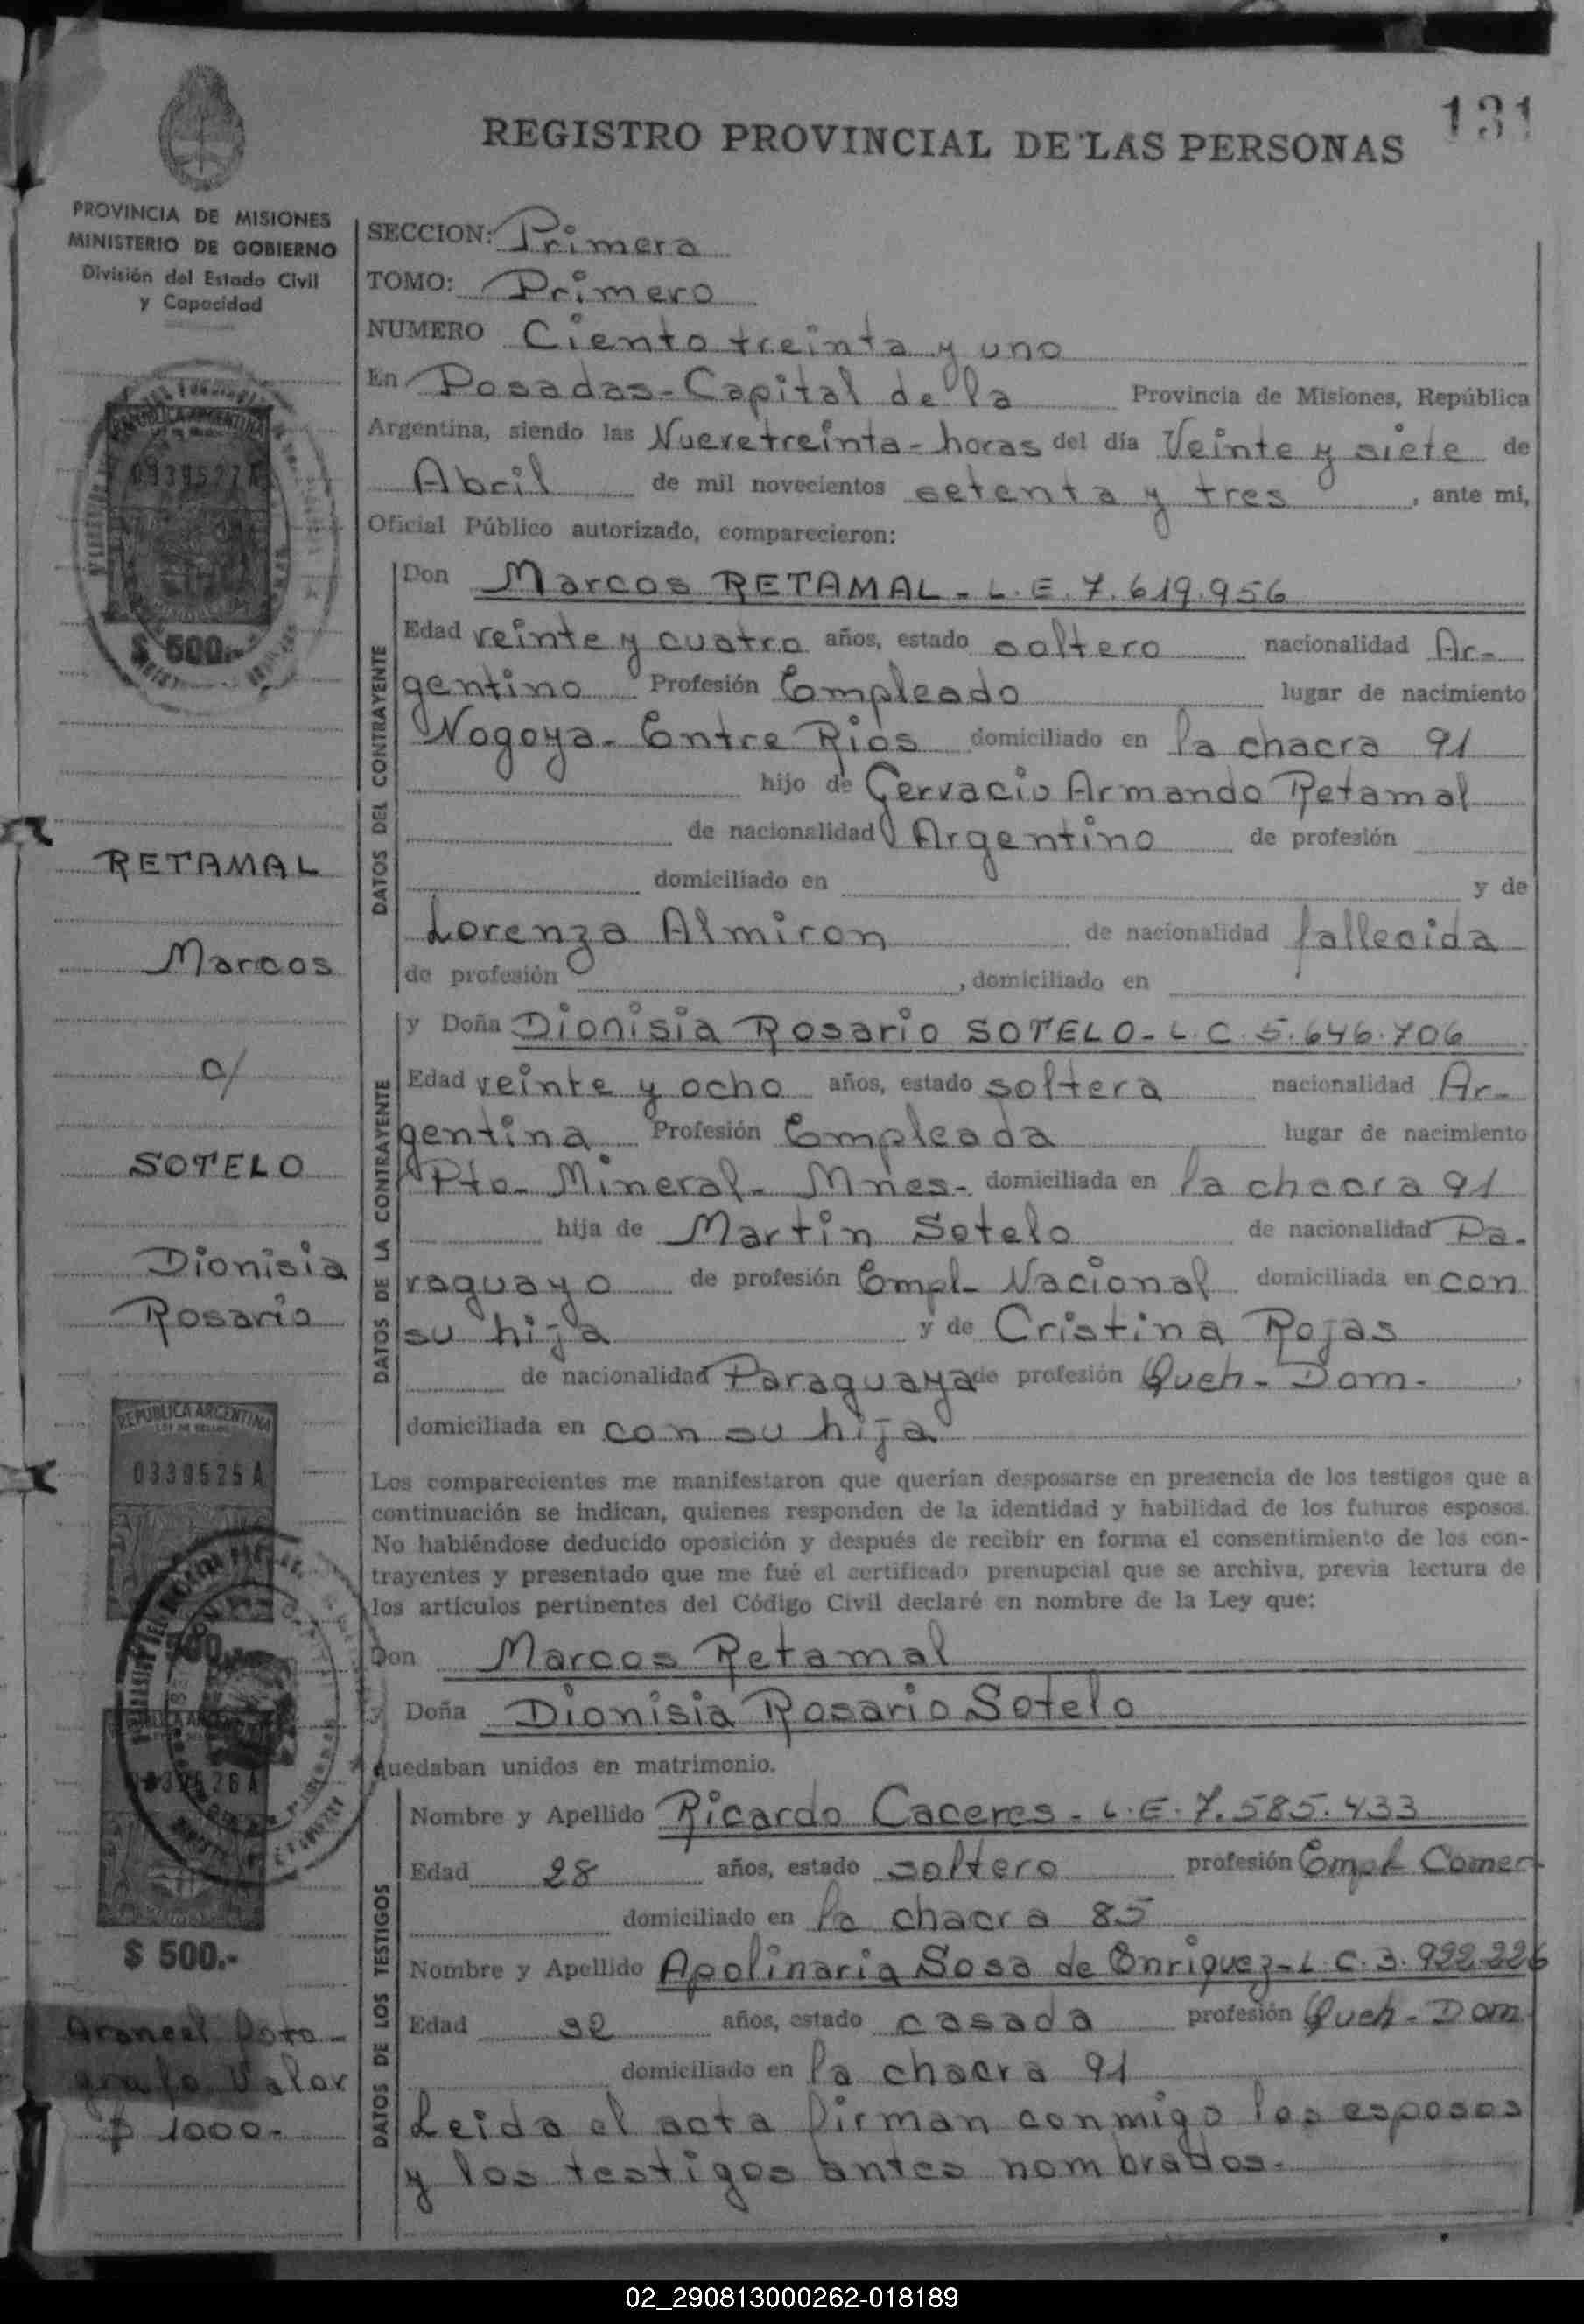 131
REGISTRO PROVINCIAL DE LAS PERSONAS
PROVINCIA DE MISIONES
MINISTERIO DE GOBIERNO
División del Estado Civil
y Capacidad
SECCION: Primera
TOMO: Primero
NUMERO Ciento treinta y uno
En Posadas-Capital de la Provincia de Misiones, República
Argentina, siendo las Nueve treinta-horas del día Veinte y siete de
Abril de mil novecientos setenta y tres, ante mi,
Oficial Público autorizado, comparecieron:
DATOS DEL CONTRAYENTE
Don Marcos RETAMAL - L.E. 7.619.956
Edad veinte y cuatro años, estado soltero nacionalidad Ar-
gentino Profesión Empleado lugar de nacimiento
Nogoya - Entre Rios domiciliado en la chacra 91
hijo de Gervacio Armando Retamal
de nacionalidad Argentino de profesión
domiciliado en y de
Lorenza Almiron de nacionalidad fallecida
de profesión , domiciliado en
DATOS DE LA CONTRAYENTE
y Doña Dionisia Rosario SOTELO - L.C. 5.646.706
Edad veinte y ocho años, estado soltera nacionalidad Ar-
gentina Profesión Empleada lugar de nacimiento
Pto- Mineral- Mnes- domiciliada en la chacra 91
hija de Martin Sotelo de nacionalidad Pa-
raguayo de profesión Empl- Nacional domiciliada en con
su hija y de Cristina Rojas
de nacionalidad Paraguaya de profesión Queh- Dom-
domiciliada en con su hija
Los comparecientes me manifestaron que querían desposarse en presencia de los testigos que a
continuación se indican, quienes responden de la identidad y habilidad de los futuros esposos.
No habiéndose deducido oposición y después de recibir en forma el consentimiento de los con-
trayentes y presentado que me fué el certificado prenupcial que se archiva, previa lectura de
los artículos pertinentes del Código Civil declaré en nombre de la Ley que:
Don Marcos Retamal
y Doña Dionisia Rosario Sotelo
quedaban unidos en matrimonio.
DATOS DE LOS TESTIGOS
Nombre y Apellido Ricardo Caceres - L.E. 7.585.433
Edad 28 años, estado soltero profesión Empl Comer
domiciliado en la chacra 85
Nombre y Apellido Apolinaria Sosa de Enriquez - L.C. 3.922.226
Edad 32 años, estado casada profesión Queh - Dom
domiciliado en la chacra 91
Leida el acta firman conmigo los esposos
y los testigos antes nombrados.
REPUBLICA ARGENTINA
0339527 A
$ 500.-
RETAMAL
Marcos
c/
SOTELO
Dionisia
Rosario
REPUBLICA ARGENTINA
LEY DE SELLOS
0339525 A
500.-
0339526 A
$ 500.-
Arancel Foto-
grafo Valor
$ 1000-
02_290813000262-018189